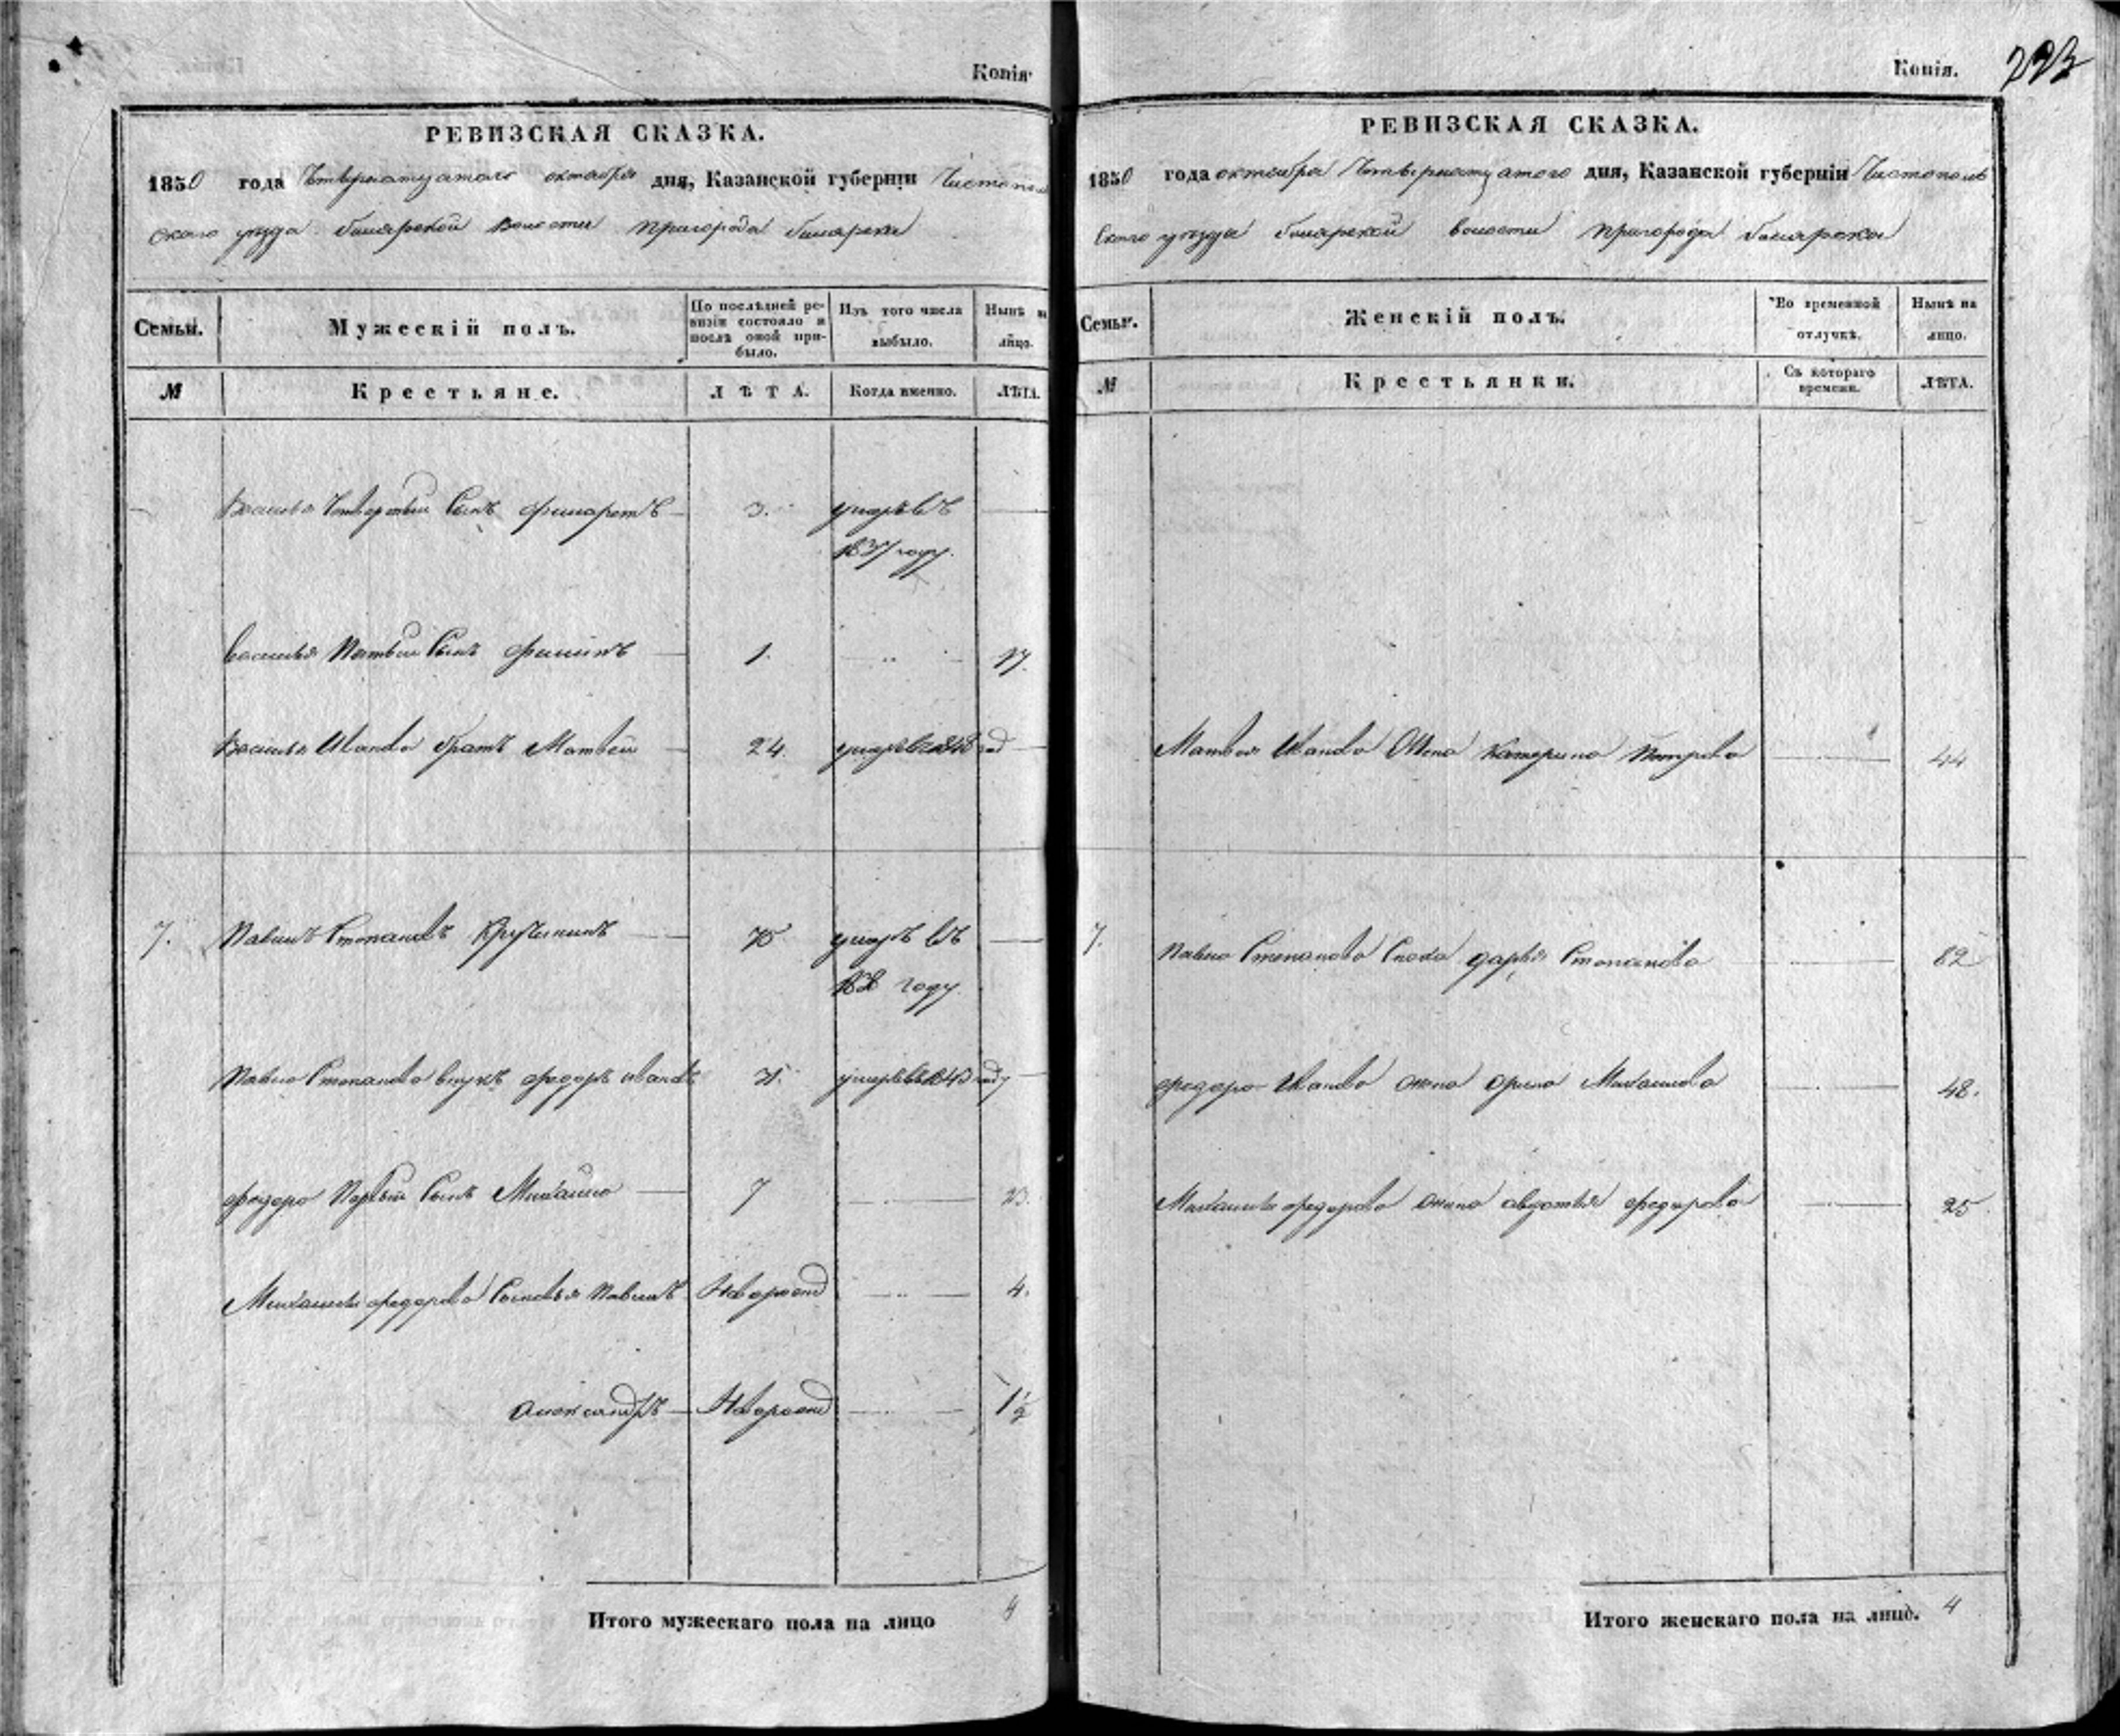 Копія.
РЕВИЗСКАЯ СКАЗКА.
1850 года Четвернатцатаго октября дня, Казанской губерніи Чистополь
скаго уезда билярской волости пригорода билярска
Семьи.
Мужескій полъ.
По послѣдней ре-
визіи состояло и
послѣ оной при-
было.
Изъ того числа
выбыло.
Нынѣ н
лицо.
№
Крестьяне.
ЛѢТА.
Когда именно.
ЛѢТА.
Василья Четвертый Сынъ филаретъ 3. умеръ въ
1837 году.
василья Пятый Сынъ филипъ 1. 17.
Василья Иванова братъ Матвей 24. умеръ въ
7. Павилъ Степановъ Кручининъ 75 умеръ въ
году.
Павла Степанова внукъ федоръ ивановъ умеръ въ 1843 году
федора Первый Сынъ Михайло 7 23.
Михаилы федорова Сыновья Павилъ Новорожд 4.
Александръ Новорожд 1½
Итого мужескаго пола на лицо 4
Копія.
223
РЕВИЗСКАЯ СКАЗКА.
1850 года октября Четвернатцатого дня, Казанской губерніи Чистополь
скаго уезда билярской волости пригорода билярска
Семьи.
Женскій полъ.
Во временной
отлучкѣ.
Нынѣ на
лицо.
№
Крестьянки.
Съ котораго
времени.
ЛѢТА.
Матвея Иванова Жена Катерина Петрова 44
7. Павла Степанова Сноха дарья Степанова 82
федора Иванова жена орина Михаилова 48.
Михаилы федорова жена авдотья федорова 25
Итого женскаго пола на лицо. 4